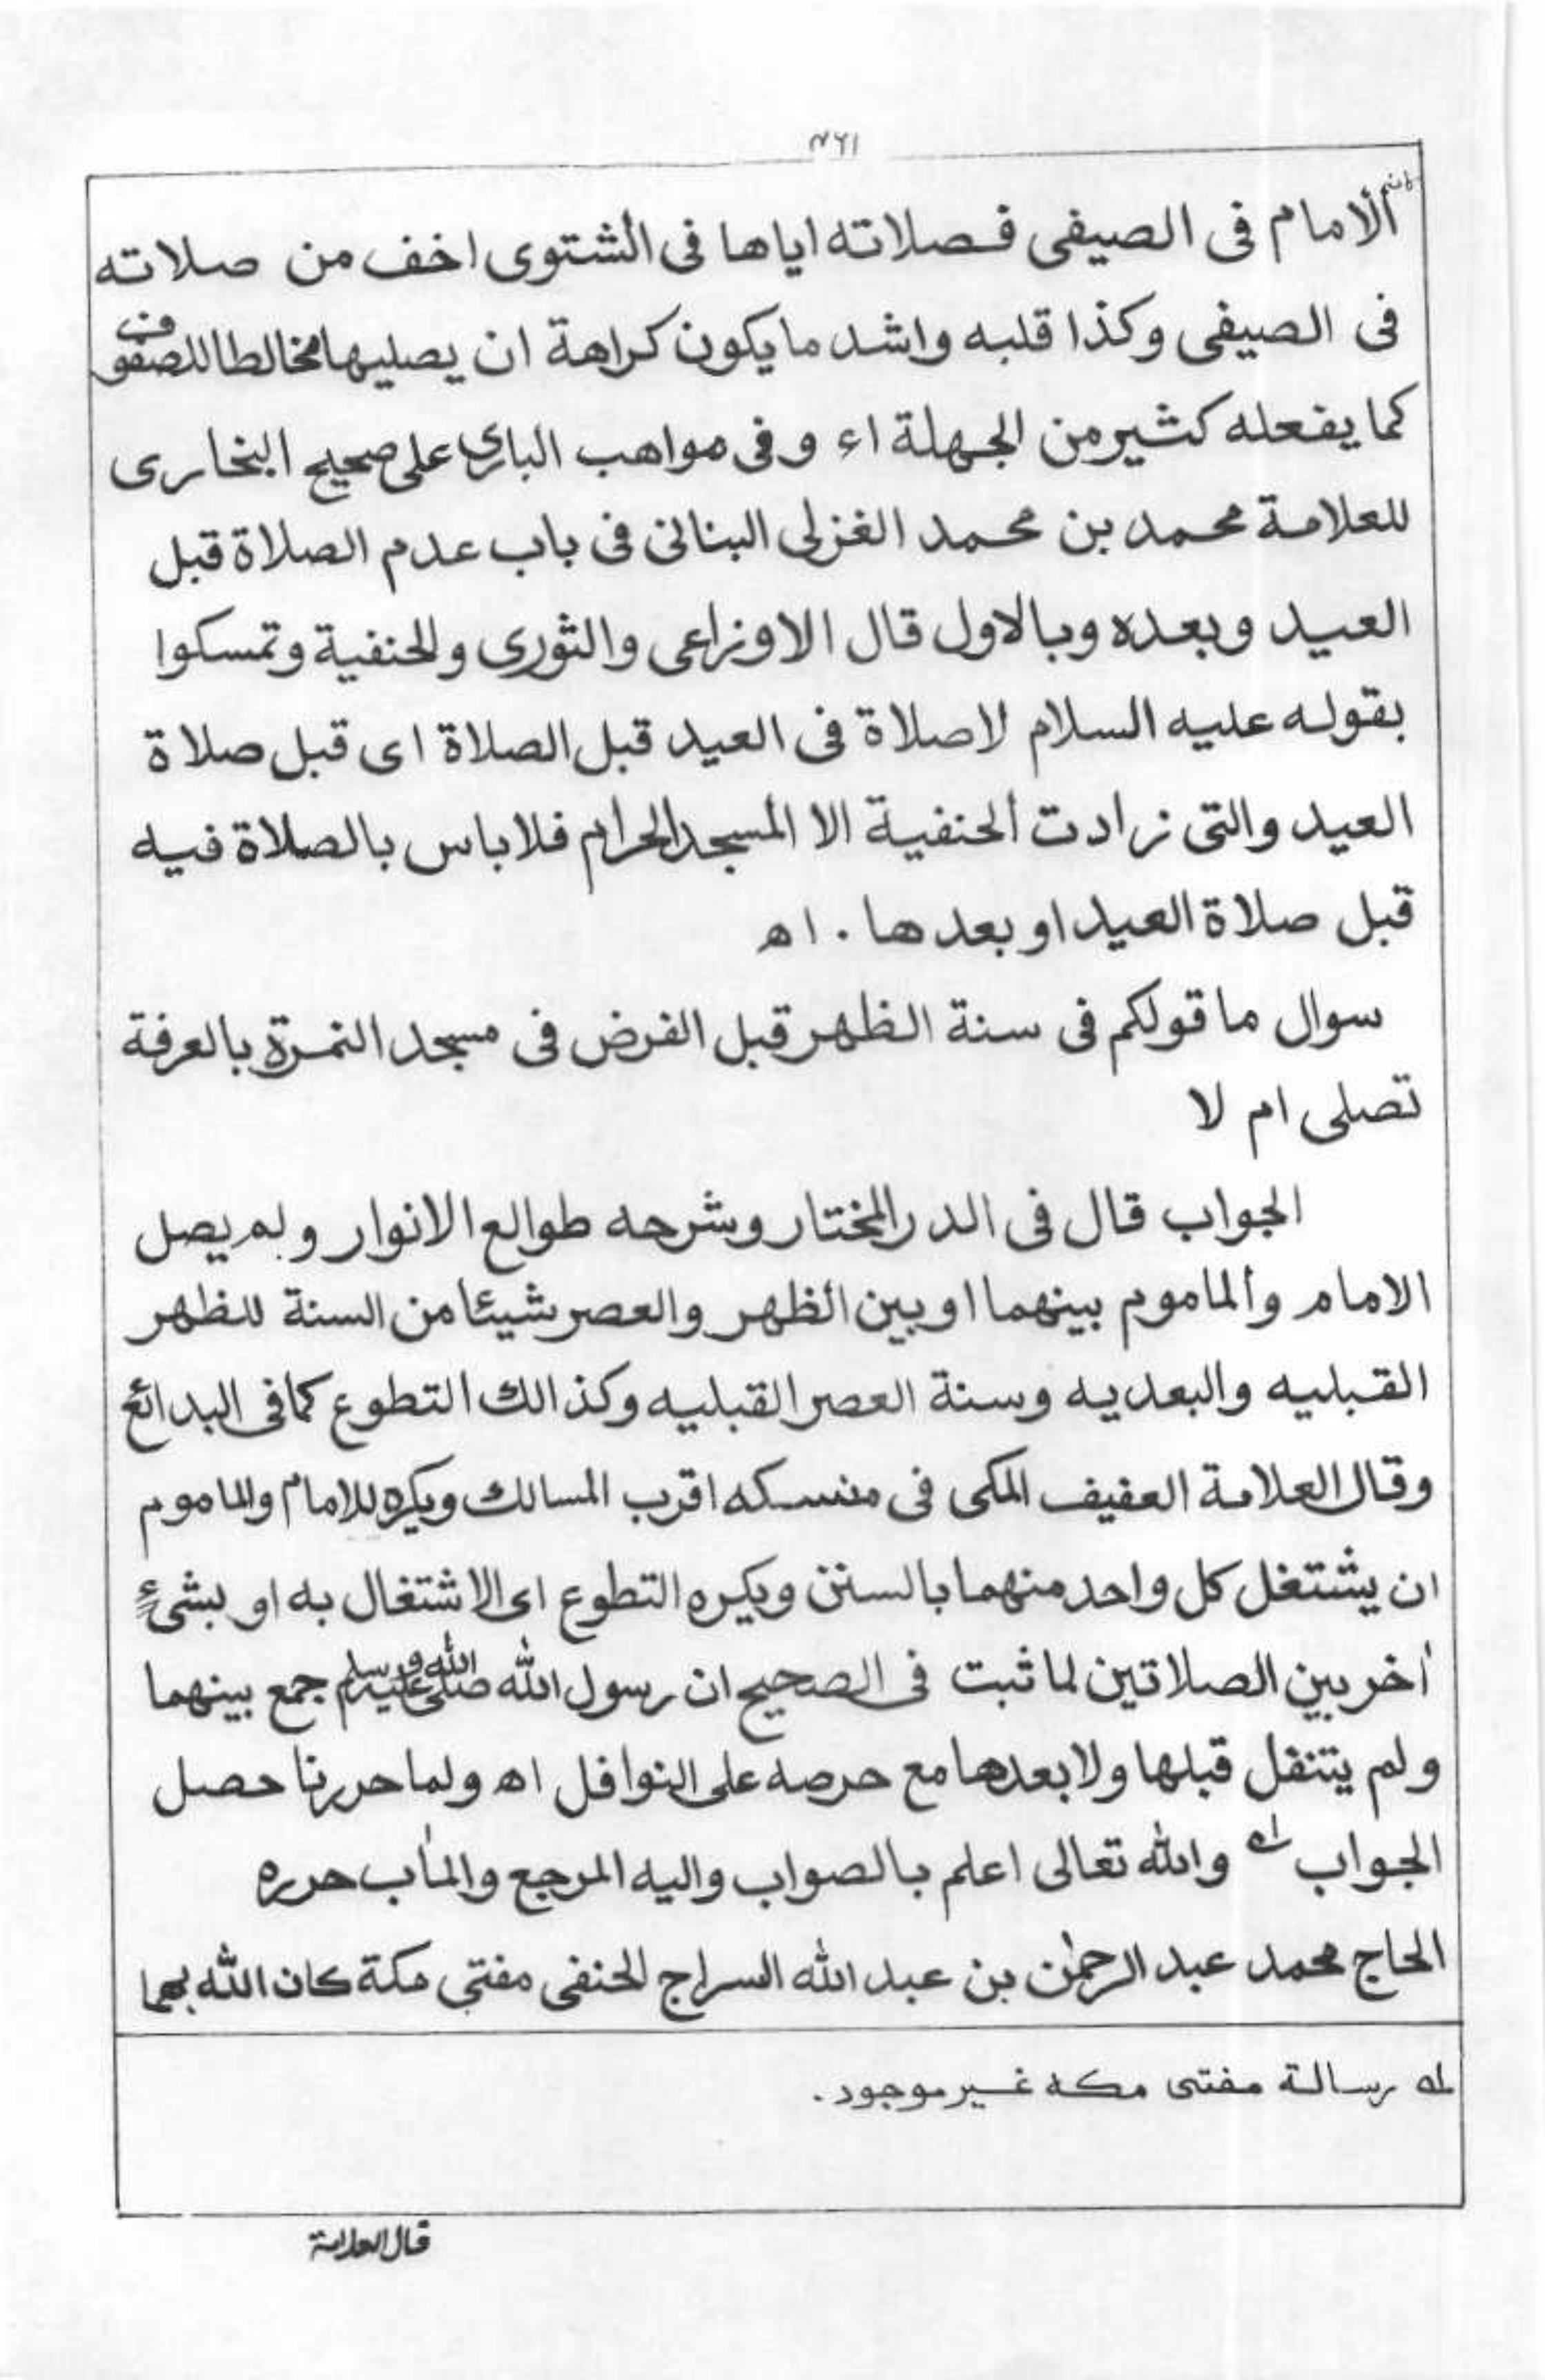 ۴۶۱
الامام فى الصيفى فصلاته اياها فى الشتوى اخف من صلاته
فى الصيفى وكذا قلبه واشد مايكون كراهة ان يصليها مخالطا للصفوف
كما يفعله كثير من الجهلة اء وفى مواهب البارى على صحيح البخارى
للعلامة محمد بن محمد الغزلى البنانى فى باب عدم الصلاة قبل
العيد وبعده وبالاول قال الاوزاعى والثورى والحنفية وتمسكوا
بقوله عليه السلام لاصلاة فى العيد قبل الصلاة اى قبل صلاة
العيد والتى زادت الحنفية الا المسجد الحرام فلاباس بالصلاة فيه
قبل صلاة العيد او بعدها . اه
سوال ما قولكم فى سنة الظهر قبل الفرض فى مسجد النمرة بالعرفة
تصلى ام لا
الجواب قال فى الدر المختار وشرحه طوالع الانوار ولم يصل
الامام والماموم بينهما او بين الظهر والعصر شيئا من السنة للظهر
القبليه والبعديه وسنة العصر القبليه وكذالك التطوع كما فى البدائع
وقال العلامة العفيف المكى فى منسكه اقرب المسالك ويكره للامام والماموم
ان يشتغل كل واحد منهما بالسنن ويكره التطوع اى الاشتغال به او بشىء
أخر بين الصلاتين لما ثبت فى الصحيح ان رسول الله صلى الله عليه وسلم جمع بينهما
ولم يتنفل قبلها ولا بعدها مع حرصه على النوافل اه ولما حررنا حصل
الجواب له والله تعالى اعلم بالصواب واليه المرجع والمأب حرره
الحاج محمد عبد الرحمٰن بن عبد الله السراج الحنفى مفتى مكة كان الله بهما
له رسالة مفتى مكه غير موجود .
قال العلامة